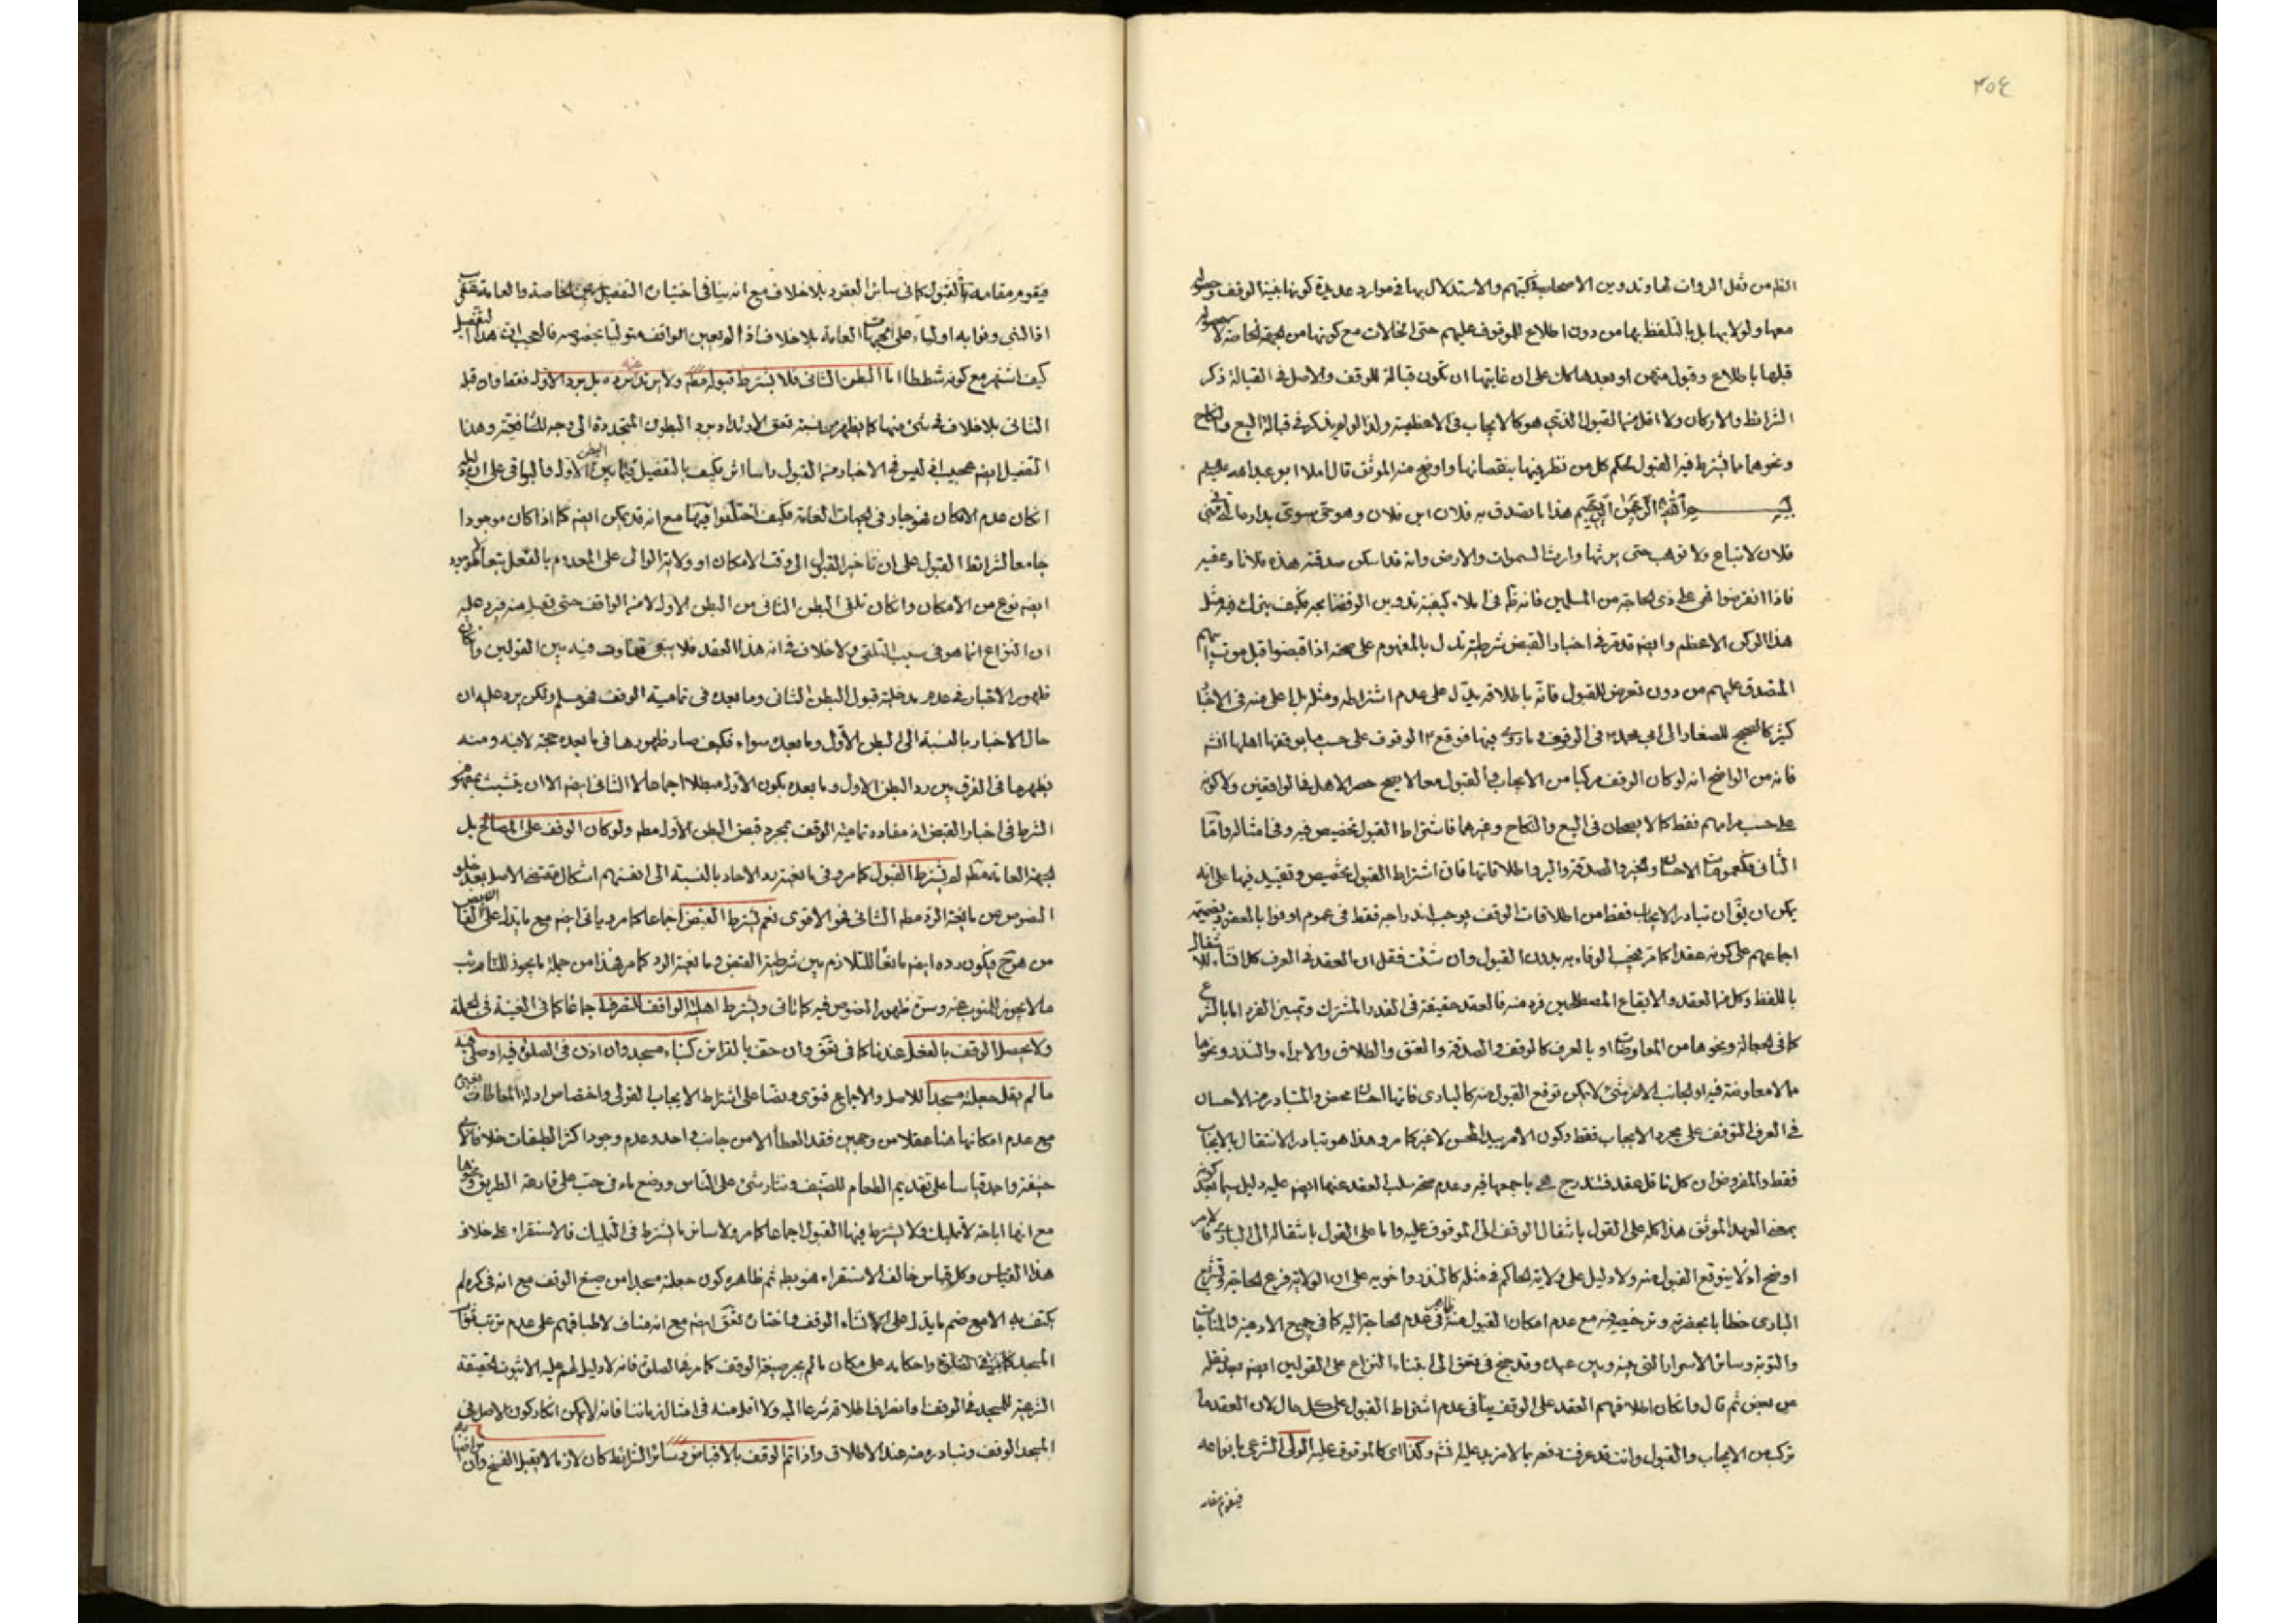 ٣٥٤
من نقل الروات لها وتدوين الاصحاب في كتبهم والاستدلال بها في موارد عديدة كونها الوقف
معها ولولا بها بل بالتلفظ بها من دون اطلاع الموقوف عليهم حتى مع كونها من الجهة الخاصة لا
قبلها باطلاع وقبول منهم او بعدها كان على ان غايتها ان تكون قبالة للوقف والاصل في القبالة ذكر
الشرائط والاركان ولا اقل منها القبول الذي هو كالايجاب في الاعظمية ولذا لو لم يذكر في قبالة البيع والنكاح
ونحوهما ما يشترط فيه القبول لحكم كل من نظر فيها بنقصانها واوضح منه الموثق قال املا ابو عبد الله عليه
بسم الله الرحمن الرحيم هذا ما تصدق به فلان ابن فلان وهو حي سوي بداره التي في بني
فلان لا تباع ولا توهب حتى يرثها وارث السموات والارض وانه قد اسكن صدقته هذه فلانا وعقبه
فاذا انقرضوا فهي على ذي الحاجة من المسلمين فانه في املاء كيفية تدوين الوقف فكيف يترك فيه مثل
هذا الركن الاعظم وايضا قد مر في اخبار القبض شرطية تدل بالمفهوم على صحته اذا قبضوا قبل موت
المتصدق عليهم من دون تعرض للقبول فانه باطلاقه يدل على عدم اشتراطه ومثله بل اعلى منه في الاخبار
كثير كالصحيح للصفار الى ابي محمد في الوقوف وما روي فيها فوقع الوقوف على حسب ما يوقفها اهلها انشاء
فانه من الواضح انه لو كان الوقف مركبا من الايجاب والقبول معا لا يصح حصر الاهل في الواقفين ولا كونه
على حسب مرامهم فقط كما لا يصحان في البيع والنكاح وغيرها فاشتراط القبول تخصيص فيه وفي امثاله واما
الثاني فكعمومات الاحسان والخير والصدقة والبر واطلاقاتها فان اشتراط القبول تخصيص وتقييد فيها على انه
يمكن ان يقال ان تبادر الايجاب فقط من اطلاقات الوقف يوجب اندراجه فقط في عموم اوفوا بالعقود
اجماعهم على كونه عقدا كما مر فيجب الوفاء به بدون القبول وان شئت فقل ان العقد في العرف كل انشاء
باللفظ وكل من العقد والايقاع المصطلحين فرد منه فالعقد حقيقة في القدر المشترك وتعيين الفرد اما بالشرع
كما في الجعالة ونحوها من المعاوضات او بالعرف كالوقف والصدقة والعتق والطلاق والابراء والنذر ونحوها
مما لا معاوضة فيه او لجانب لا يمكن توقع القبول منه كالباري فانها احسان محض والمتبادر من الاحسان
في العرف التوقف على مجرد الايجاب فقط وكون الامر بيد المحسن لا غير كما مر وهذا هو تبادر الانتقال بالايجاب
فقط والمفروض ان كل ناقل عقد فتندرج هي باجمعها فيه وعدم صحة سلب العقد عنها ايضا عليه دليل سيما بعد
الموثق هذا كله على القول بانتقال الوقف الى الموقوف عليه واما على القول بانتقاله الى الباري فالامر
اوضح اذ لا يتوقع القبول منه ولا دليل على ولاية الحاكم في مثله كالنذر واخويه على ان الولاية فرع الحاجة
الباري خطابا بحضرته مع عدم امكان القبول منه في عدم الحاجة اليه كما في جميع الادعية والمناجات
والتوبة وسائر الاسرار التي بينه وبين عبده وقد جنح في الى ابتناء النزاع على القولين ايضا بعد نقله
من بعض ثم قال وان كان اطلاقهم العقد على الوقف ينافي عدم اشتراط القبول على كل حال لان العقد ما
تركب من الايجاب والقبول وانت قد عرفت دفعه بما لا مزيد عليه وكذا اي كالموقوف عليه الولي الشرعي بانواعه
فيقوم مقامه
فيقوم مقامه بالقبول كما في سائر العقود بلا خلاف مع انه ينافي اختيار التفصيل بين الخاصة والعامة
اذ النبي ونوابه اولياء على الجهات العامة بلا خلاف اذا لم يعين الواقف متوليا بخصوصه فالعجب ان هذا التفصيل
كيف اشتهر مع كونه شططا اما البطن الثاني فلا يشترط قبوله ولا يرتد برده بل برد الاول فقط وان قبله
الثاني بلا خلاف في شئ منهما كما يظهر من نسبة الارتداد برد البطون المتجددة الى وجه للشافعية وهذا
التفصيل ايضا عجيب اذ ليس في الاخبار من القبول راسا اثر فكيف بالتفصيل فيما بين البطن الاول والبواقي على ان
ان كان عدم الامكان فهو جار في الجهات العامة فكيف اختلفوا فيها مع انه قد يمكن ايضا كما اذا كان موجودا
جامعا لشرائط القبول على ان تاخير القبول الى وقت الامكان او ولاية الوالي على المعدوم بالفعل تبعا للموجود
ايضا نوع من الامكان وان كان تلقي البطن الثاني من البطن الاول لا من الواقف حتى يقبل منه فيرد عليه
ان النزاع انما هو في سبب التلقي ولا خلاف في انه هذا العقد فلا يبقى تفاوت فيه بين القولين وان كان
ظهور الاخبار في عدم مدخلية قبول البطن الثاني وما بعده في تمامية الوقف فهو مسلم ولكن يرد عليه ان
حال الاخبار بالنسبة الى البطن الاول وما بعده سواء فكيف صار ظهورها في ما بعده حجة لا فيه ومنه
يظهر ما في الفرق بين رد البطن الاول وما بعده بكون الاول مبطلا اجماعا لا الثاني ايضا الا ان يتشبث بمفهوم
الشرط في اخبار القبض اذ مفاده تمامية الوقف بمجرد قبض البطن الاول ولو كان الوقف على المصالح بل
لجهة العامة لم يشترط القبول كما مر وفي مانعية رد الاحاد بالنسبة الى انفسهم اشكال مقتضى الاصل بعد خلو
النصوص من مانعية الرد الثاني هو الاقوى نعم يشترط القبض اجماعا كما مر وياتي ايضا مع ما يدل على
فيكون رده ايضا مانعا للتلازم بين شرطية القبض ومانعية الرد كما مر فهذا من جملة ما يجوز
ما لا يجوز للمنوب عنه وسره ظهور النصوص فيه كما ويشترط اهلية الواقف للتصرف اجماعا كما في الغنية في الجملة
ولا يحصل الوقف بالفعل عندنا كما في وان حف بالقرائن كبناء مسجد وان اذن في الصلوة فيه او صلى فيه
ما لم يقل جعلته مسجدا للاصل والاجماع فتوى ونصا على اشتراط الايجاب القولي واختصاص ادلة المعاطات
مع عدم امكانها هنا عقلا من وجهين فقد العطاء الا من جانب واحد وعدم وجود اكثر الطبقات خلافا لابي
حنيفة واحمد قياسا على تقديم الطعام للضيف ونثار شئ على الناس ووضع ماء في حب على قارعة الطريق ونحوها
مع انها اباحة لا تمليك ولا يشترط فيها القبول اجماعا كما مر ولا سائر ما يشترط في التمليك فالاستقراء على خلاف
هذا القياس وكل قياس خالف الاستقراء فهو ثم ظاهره كون جعلته مسجدا من صيغ الوقف مع انه في كره لم
يكتف به الا مع ضم ما يدل على انشاء الوقف واختاره ايضا مع انه مناف لاطباقهم على عدم ترتب
المسجد واحكامه على مكان ما لم يجر صيغة الوقف كما مر في الصلوة فانه لا دليل لهم عليه الا ثبوت الحقيقة
الشرعية للمسجد في الوقف او انصراف اطلاقه شرعا اليه ولا اقل منه في امثال زماننا فانه لا يمكن انكار كون الاصل في
المسجد الوقف وتبادره منه عند الاطلاق واذا تم الوقف بالاقباض وسائر الشرائط كان لازما لا يقبل الفسخ وان